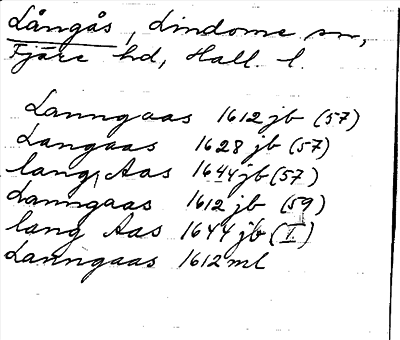 Långås, Lindome sn,
Fjäre hd, Hall. l.
Lanngaas 1612 jb (57)
Langaas 1628 jb (57)
lang Aas 1644 jb (57)
Lanngaas 1612 jb (59)
lang Aas 1644 jb (I)
Lanngaas 1612 ml